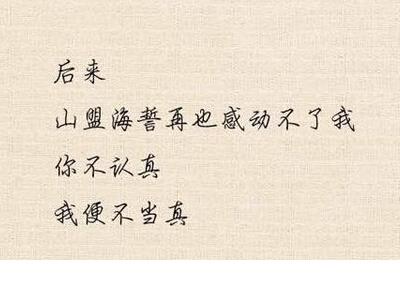 后来
山盟海誓再也感动不了我
你不认真
我便不当真